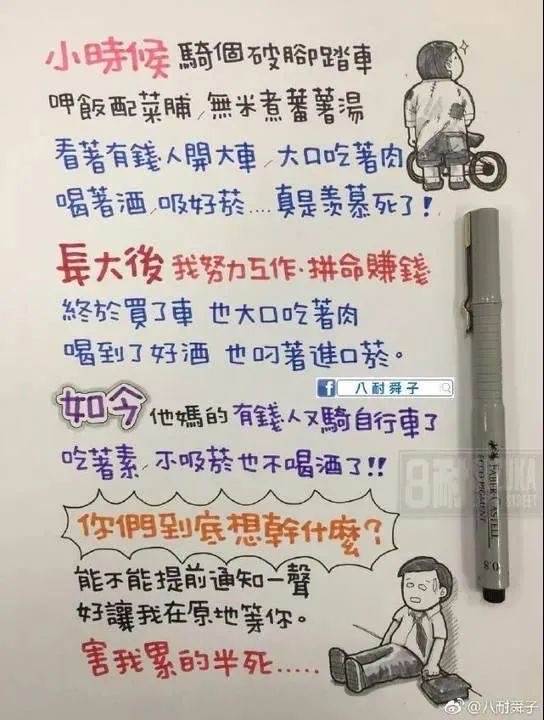 小時候 騎個破腳踏車
呷飯配菜脯, 無米煮蕃薯湯
看著有錢人開大車, 大口吃著肉
喝著酒, 吸好菸....真是羨慕死了!
長大後 我努力工作·拼命賺錢
終於買了車 也大口吃著肉
喝到了好酒 也叼著進口菸。
八耐舜子
如今 他媽的 有錢人又騎自行車了
吃著素, 不吸菸也不喝酒了!!
你們到底想幹什麼?
能不能提前通知一聲
好讓我在原地等你。
害我累的半死.....
FABER-CASTELL
ECCO PIGMENT
0.8
@八耐舜子